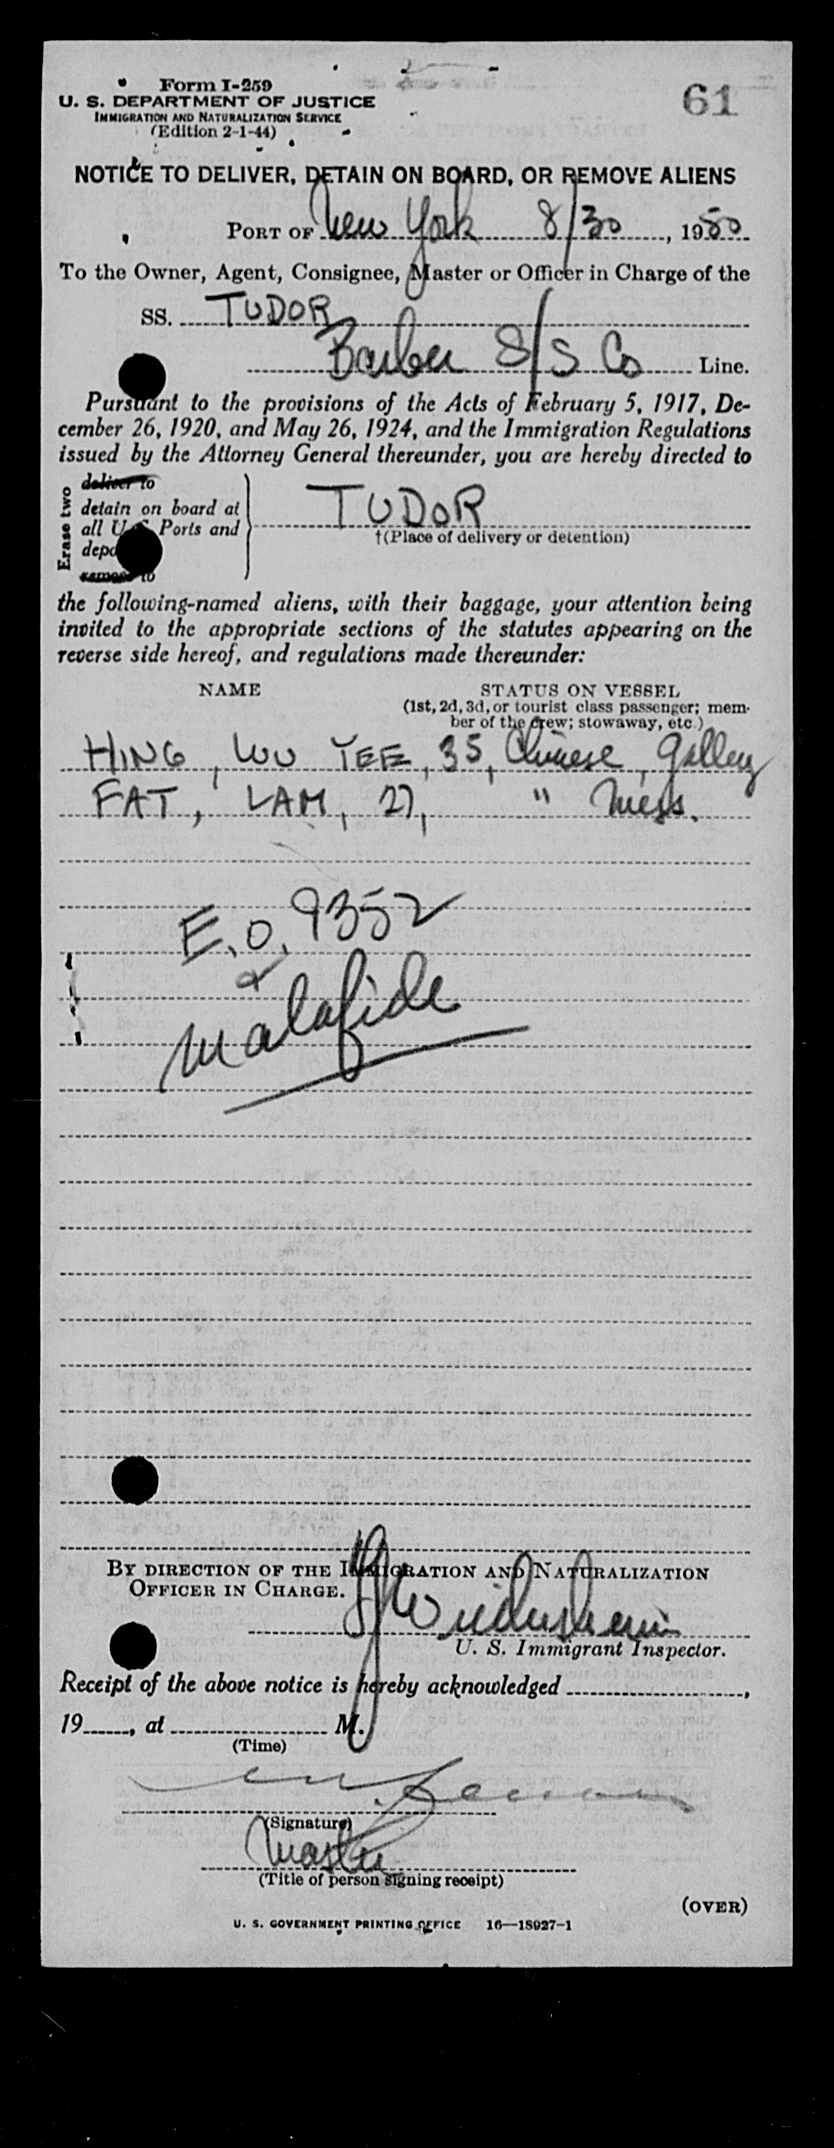 61
Form I-259
U. S. DEPARTMENT OF JUSTICE
IMMIGRATION AND NATURALIZATION SERVICE
(Edition 2-1-44)
NOTICE TO DELIVER, DETAIN ON BOARD, OR REMOVE ALIENS
PORT OF New York 8/30, 1950
To the Owner, Agent, Consignee, Master or Officer in Charge of the
SS. TUDOR
Barber S/S Co Line.
Pursuant to the provisions of the Acts of February 5, 1917, De-
cember 26, 1920, and May 26, 1924, and the Immigration Regulations
issued by the Attorney General thereunder, you are hereby directed to
Erase two
deliver to
detain on board at
all U. S. Ports and
remove to
TUDOR
†(Place of delivery or detention)
the following-named aliens, with their baggage, your attention being
invited to the appropriate sections of the statutes appearing on the
reverse side hereof, and regulations made thereunder:
NAME STATUS ON VESSEL
(1st, 2d, 3d, or tourist class passenger; mem-
ber of the crew; stowaway, etc.)
HING, WU YEE, 35, Chinese, galley
FAT, LAM, 27, " Mess.
E.O. 9352
&
malafide
BY DIRECTION OF THE IMMIGRATION AND NATURALIZATION
OFFICER IN CHARGE.
U. S. Immigrant Inspector.
Receipt of the above notice is hereby acknowledged ,
19 , at M.
(Time)
(Signature)
Master
(Title of person signing receipt)
(OVER)
U. S. GOVERNMENT PRINTING OFFICE 16—18927-1